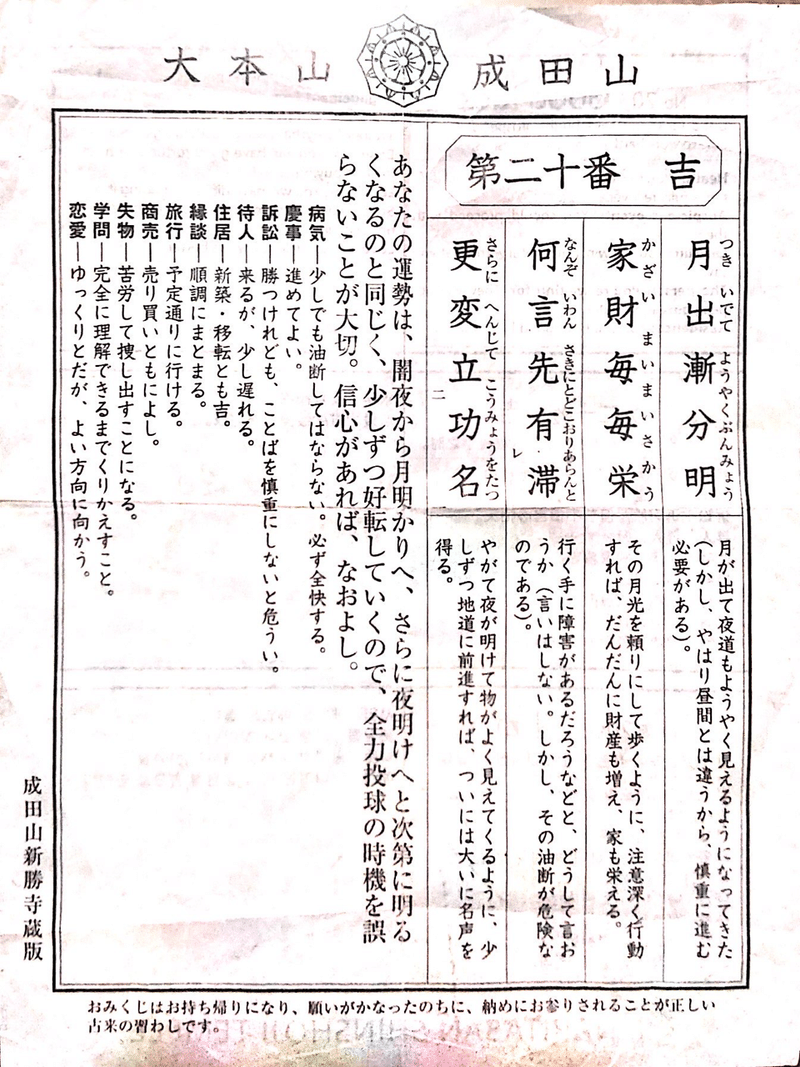 大本山 成田山
第二十番 吉
月出漸分明
つき いでて ようやくぶんみょう
月が出て夜道もようやく見えるようになってきた
(しかし、やはり昼間とは違うから、慎重に進む
必要がある)。
家財毎毎栄
かざい まいまいさかう
その月光を頼りにして歩くように、注意深く行動
すれば、だんだんに財産も増え、家も栄える。
何言先有レ滞
なんぞ いわん さきにとどこおりあらんと
行く手に障害があるだろうなどと、どうして言お
うか(言いはしない。しかし、その油断が危険な
のである)。
更変立二功名
さらに へんじて こうみょうをたつ
やがて夜が明けて物がよく見えてくるように、少
しずつ地道に前進すれば、ついには大いに名声を
得る。
あなたの運勢は、闇夜から月明かりへ、さらに夜明けへと次第に明る
くなるのと同じく、少しずつ好転していくので、全力投球の時機を誤
らないことが大切。信心があれば、なおよし。
病気―少しでも油断してはならない。必ず全快する。
慶事―進めてよい。
訴訟―勝つけれども、ことばを慎重にしないと危うい。
待人―来るが、少し遅れる。
住居―新築・移転とも吉。
縁談―順調にまとまる。
旅行―予定通りに行ける。
商売―売り買いともによし。
失物―苦労して捜し出すことになる。
学問―完全に理解できるまでくりかえすこと。
恋愛―ゆっくりとだが、よい方向に向かう。
成田山新勝寺蔵版
おみくじはお持ち帰りになり、願いがかなったのちに、納めにお参りされることが正しい
古来の習わしです。